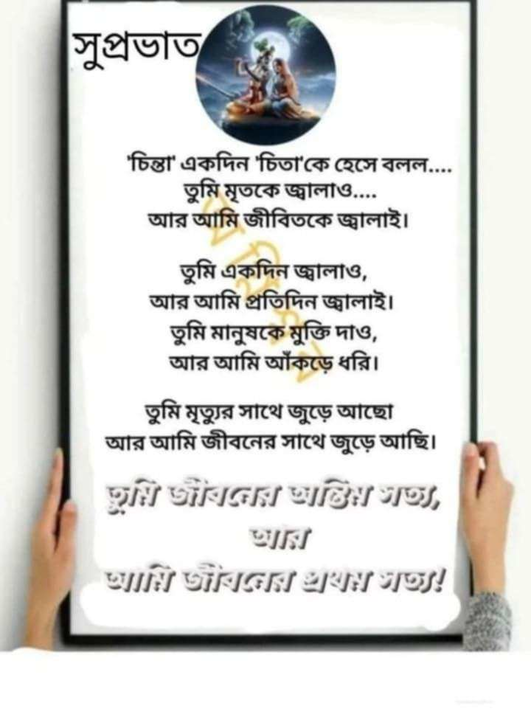 সুপ্রভাত
'চিন্তা' একদিন 'চিতা'কে হেসে বলল....
তুমি মৃতকে জ্বালাও....
আর আমি জীবিতকে জ্বালাই।
তুমি একদিন জ্বালাও,
আর আমি প্রতিদিন জ্বালাই।
তুমি মানুষকে মুক্তি দাও,
আর আমি আঁকড়ে ধরি।
তুমি মৃত্যুর সাথে জুড়ে আছো
আর আমি জীবনের সাথে জুড়ে আছি।
তুমি জীবনের অন্তিম সত্য,
আর
আমি জীবনের প্রথম সত্য!